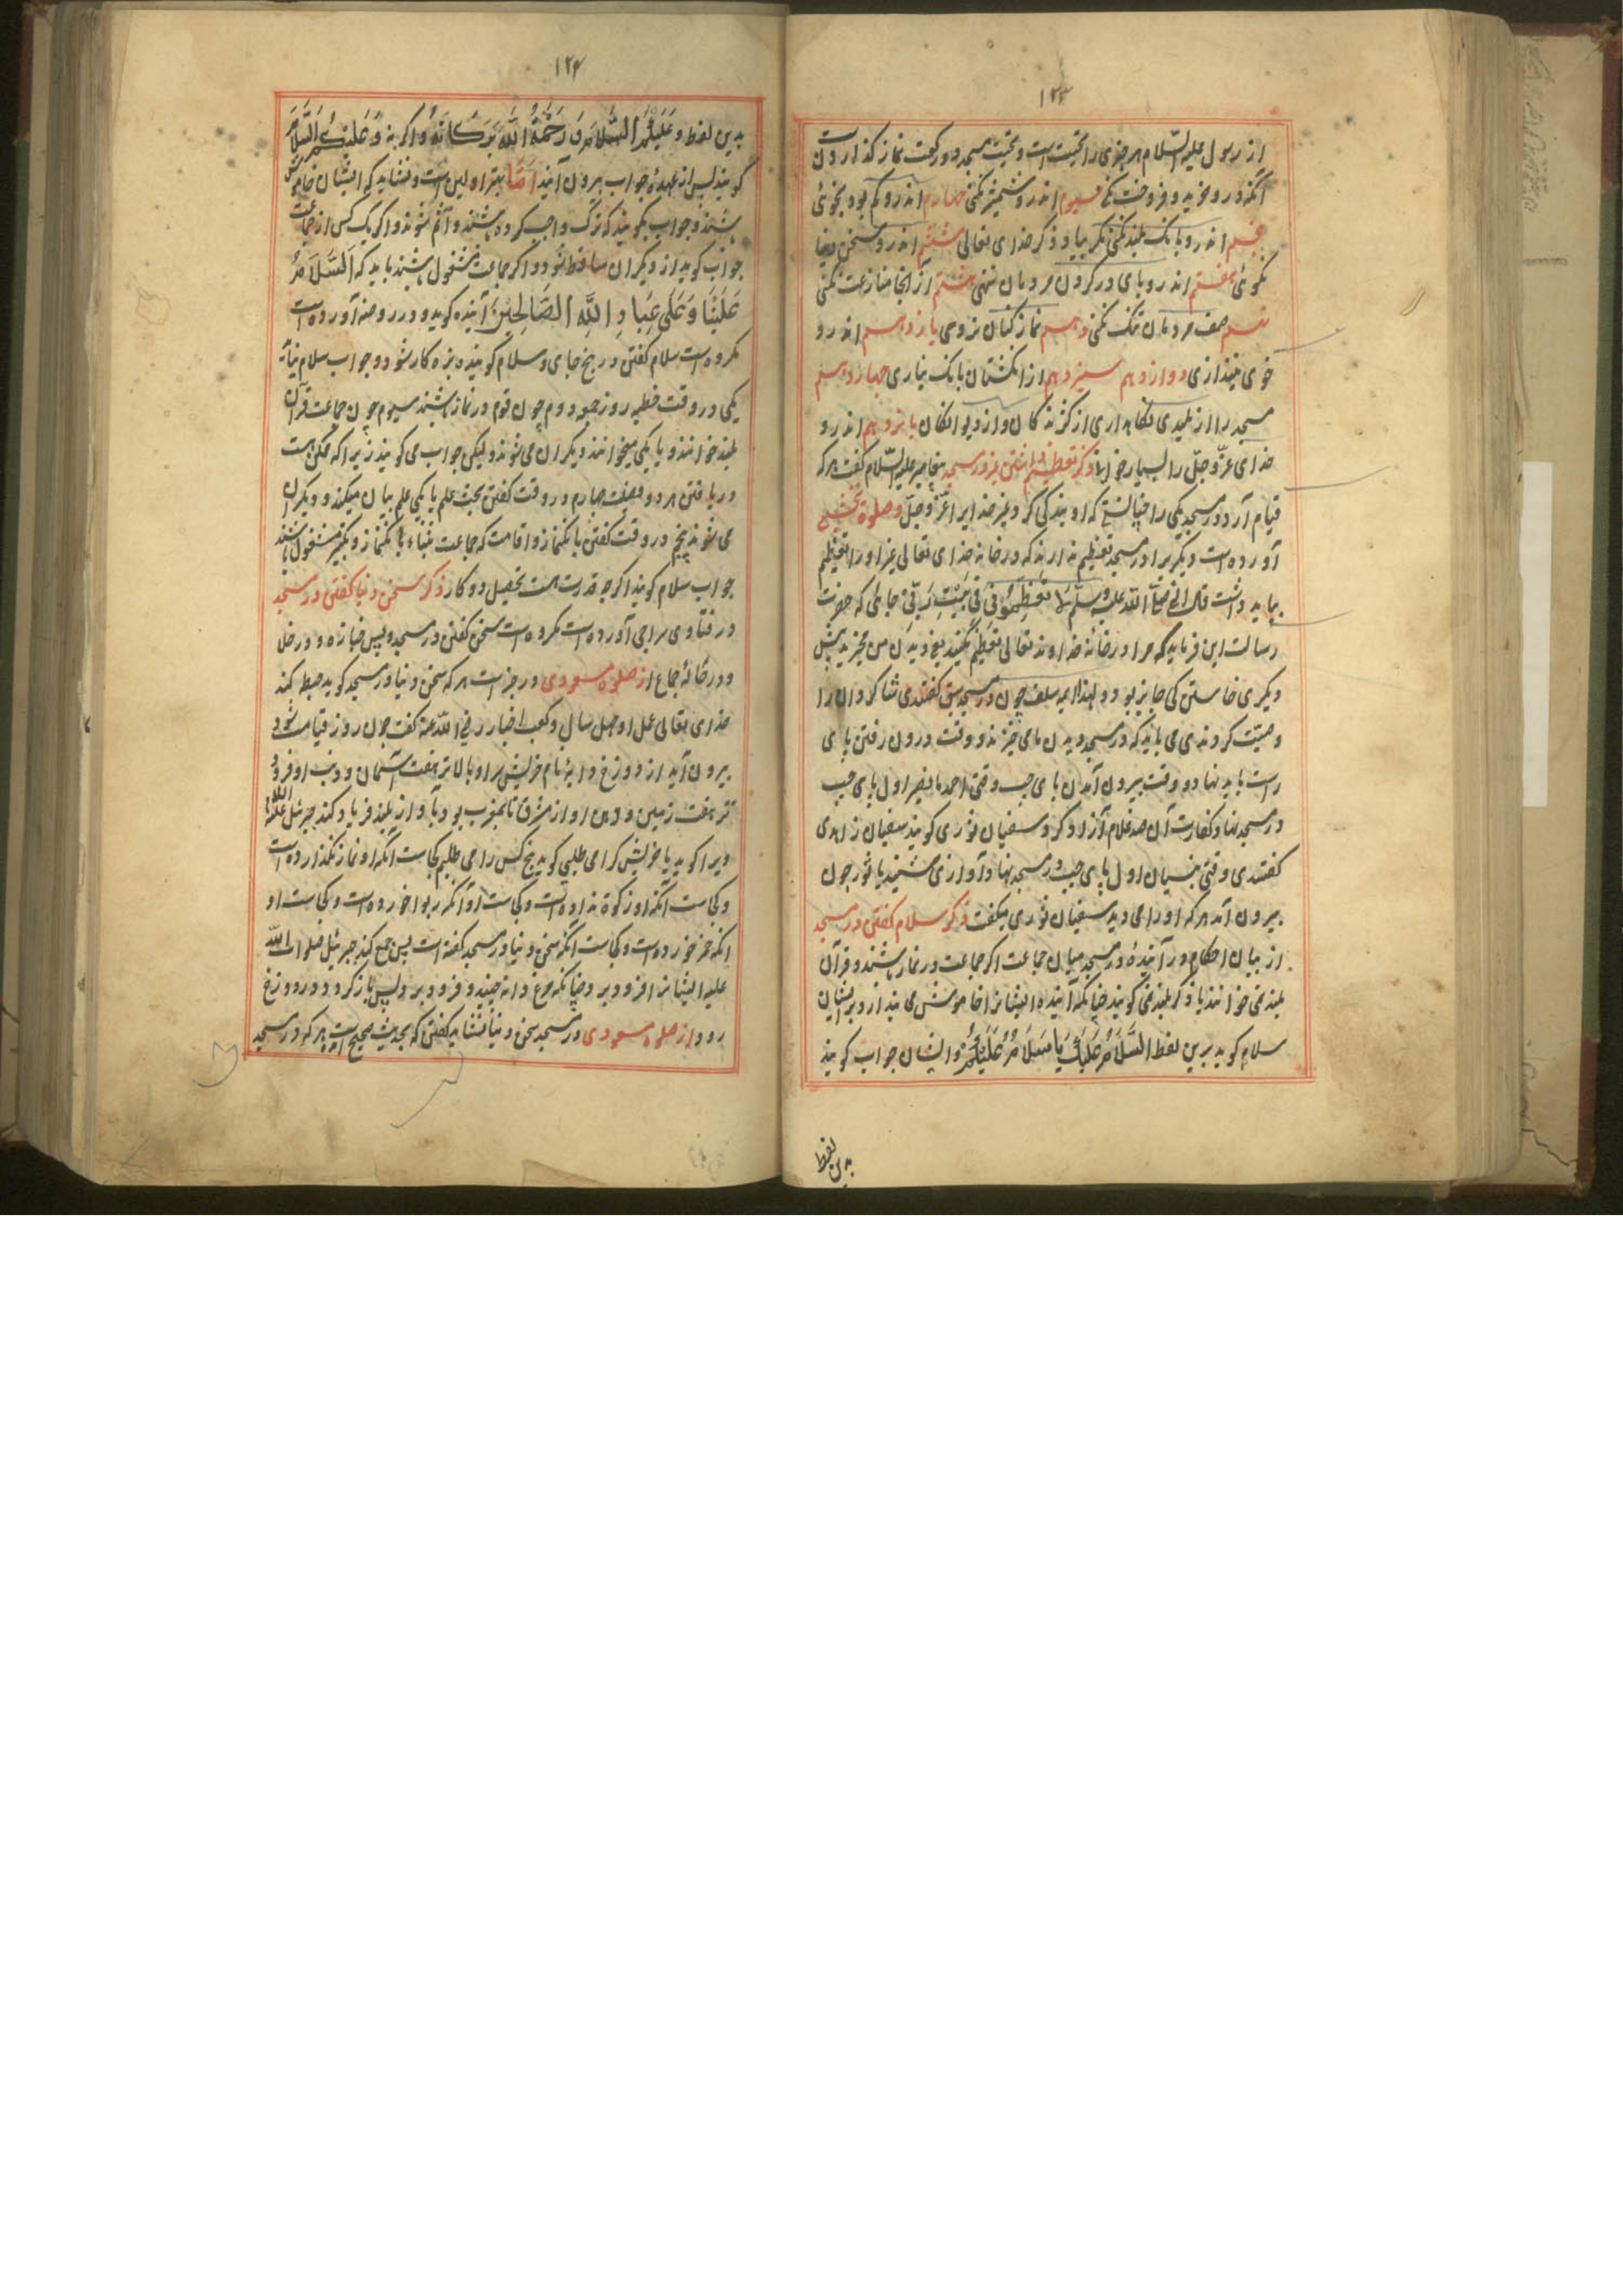 ۱۲۳
از رسول علیه السلام هر چیزی را تحیت است و تحیت مسجد دو رکعت نماز گذاردن است
آنکه درو خرید و فروخت نکنی سیوم اندرو شمشیر نکشی چهارم اندرو گم بوده نجوئی
پنجم اندرو بانک بلند نکنی مگر بیاد و ذکر خدای تعالی ششم اندرو سخن دنیا
نگوئی هفتم اندرو پای در گردن مردمان ننهی هشتم از انجا منازعت نکنی
نهم صف مردمان تنک نکنی دهم نماز کنان نروی یازدهم اندرو
خوی نیندازی دوازدهم سیزدهم از انکشتان بانک نیاری چهاردهم
مسجد را از پلیدی نگاهداری از کژندکان و از دیوانکان پانزدهم اندرو
خدای عز و جل را بسیار خوانی ذکر تعظیم داشتن در مسجد پیغامبر علیه السلام گفت هر که
قیام آرد در مسجد یکی را چنانستی که او بندکی کرد غیر خدایرا عز و جل و صلوة نخشبی
آورده است دیگر برا در مسجد تعظیم ندارند که در خانه خدای تعالی غیر او را تعظیم
نباید داشت قال النبی صلی الله علیه وسلم لا تعظمونی فی بیت ربی جائی که حضرت
رسالت این فرماید که مرا در خانه خداوند تعالی تعظیم مکنید یعنی دیدن من مخیزید پیش
دیگری خاستن کی جایز بود و لهذا ایمه سلف چون در مسجد سبق گفتندی شاکردان را
وصیت کردندی می باید که در مسجد دیدن ما می خیزند و وقت درون رفتن پای
راست باید نهاد و وقت بیرون آمدن پای چپ وقتی احمد بانصر اول پای چپ
در مسجد نهاد کفارت آن صد غلام آزاد کرد و سفیان ثوری گویند سفیان زاهدی
گفتندی وقتی بنسیان اول پای چپ در مسجد نهاد آوازی شنید یا ثور چون
بیرون آمد هر که او را می دید سفیان ثوری میگفت ذکر سلام گفتن در مسجد
از بیان احکام در آینده در مسجد میان جماعت اگر جماعت در نماز باشند و قرآن
بلند نمی خوانند یا ذکر بلند نمی گویند چنانکه آینده ایشانرا خاموش می پندارد بر ایشان
سلام گوید برین لفظ السلام علیک یا سلام علیکم و ایشان جواب گویند
بدین لفظ
۱۲۴
بدین لفظ و علیکم السلام و رحمة الله و برکاته و اگر به و علیکم السلام
گویند پس از عهدهٔ جواب برون آیند اما بهتر اولین است و نشاید که ایشان خاموش
باشند و جواب نگویند که ترک واجب کرده باشند و آثم شوند و اگر یک کس از جماعت
جواب گوید از دیگران ساقط شود و اگر جماعت مشغول باشند باید که السلام
علینا و علی عباد الله الصالحین آینده گوید و در روضه آورده است
مکروه است سلام گفتن در پنج جای و سلام گوینده بزه کار شود و جواب سلام نیاید
یکی در وقت خطبه روز جمعه دوم چون قوم در نماز باشند سیوم چون جماعت قرآن
بلند خوانند و یا یکی میخواند و دیگران می شنوند ولیکن جواب می گویند زیرا که ممکن است
دریافتن هر دو فضیلت چهارم در وقت گفتن بحث علم یا یکی علم بیان میکند و دیگران
می شنوند پنجم در وقت گفتن بانکنماز و اقامت که جماعت بثناء بانکنماز و تکبیر مشغول باشند
جواب سلام گویند اگرچه قدرت هست تحصیل دو کار ذکر سخن دنیا گفتن در مسجد
در فتاوی سراجی آورده است مکروه است سخن گفتن در مسجد و پس جنازه و در خلا
و در حالة جماع از صلوة مسعودی در خبر است هر که سخن دنیا در مسجد گوید حبط کند
خدای تعالی عمل او چهل سال و کعب احبار رضی الله عنه گفت چون روز قیامت شود
بیرون آید از دوزخ دابه نام حریش سر او بالاتر هفت آسمان و ذنب او فرود
تر هفت زمین و دهن او از مشرق تا بمغرب بود بآواز بلند فریاد کند جبرئیل علیه السلام
ویرا گوید یا حریش کرا می طلبی گوید پنج کس را می طلبم کجاست آنکه او نماز نگذارده است
و کجاست آنکه او زکوة نداده است و کجاست او آنکه ربوا خورده است و کجاست او
آنکه خمر خورده است و کجاست آنکه سخن دنیا در مسجد گفته است پس جمع کند جبرئیل صلوات الله
علیه ایشانرا فرو برد چنانکه مرغ دانه چیند و فرو برد پس باز گردد و در دوزخ
رود از صلوة مسعودی در مسجد سخن دنیا نشاید گفتن که بحدیث صحیح است هر که در مسجد